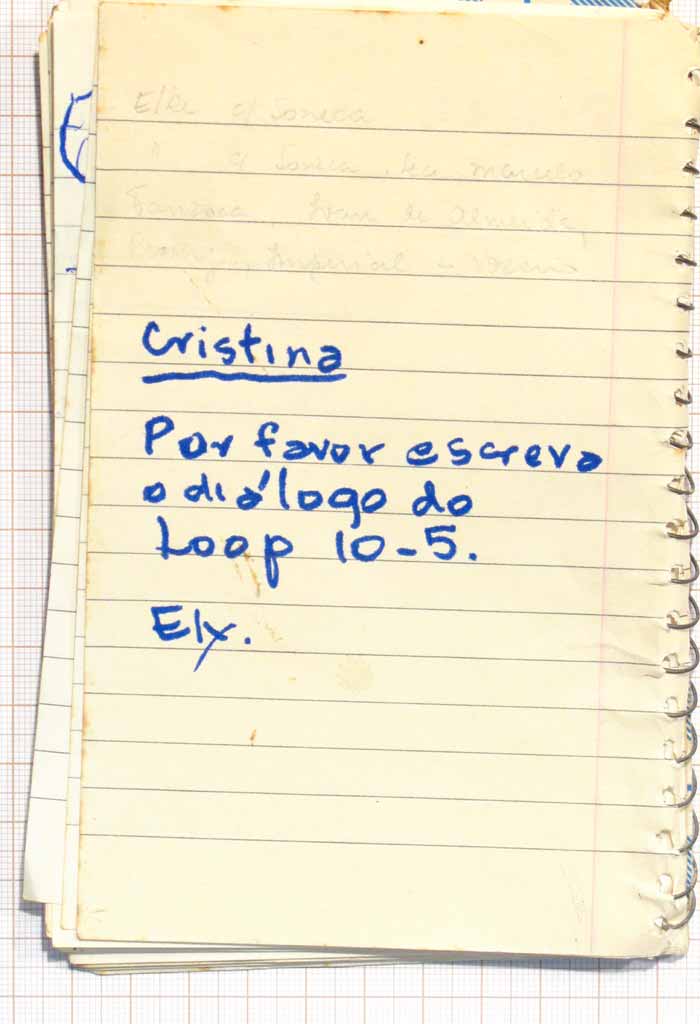 Elke c/ Soneca
" c/ Soneca
Ivan de Almeida,
Imperial e
Cristina
Por favor escreva
o diálogo do
Loop 10-5.
Ely.